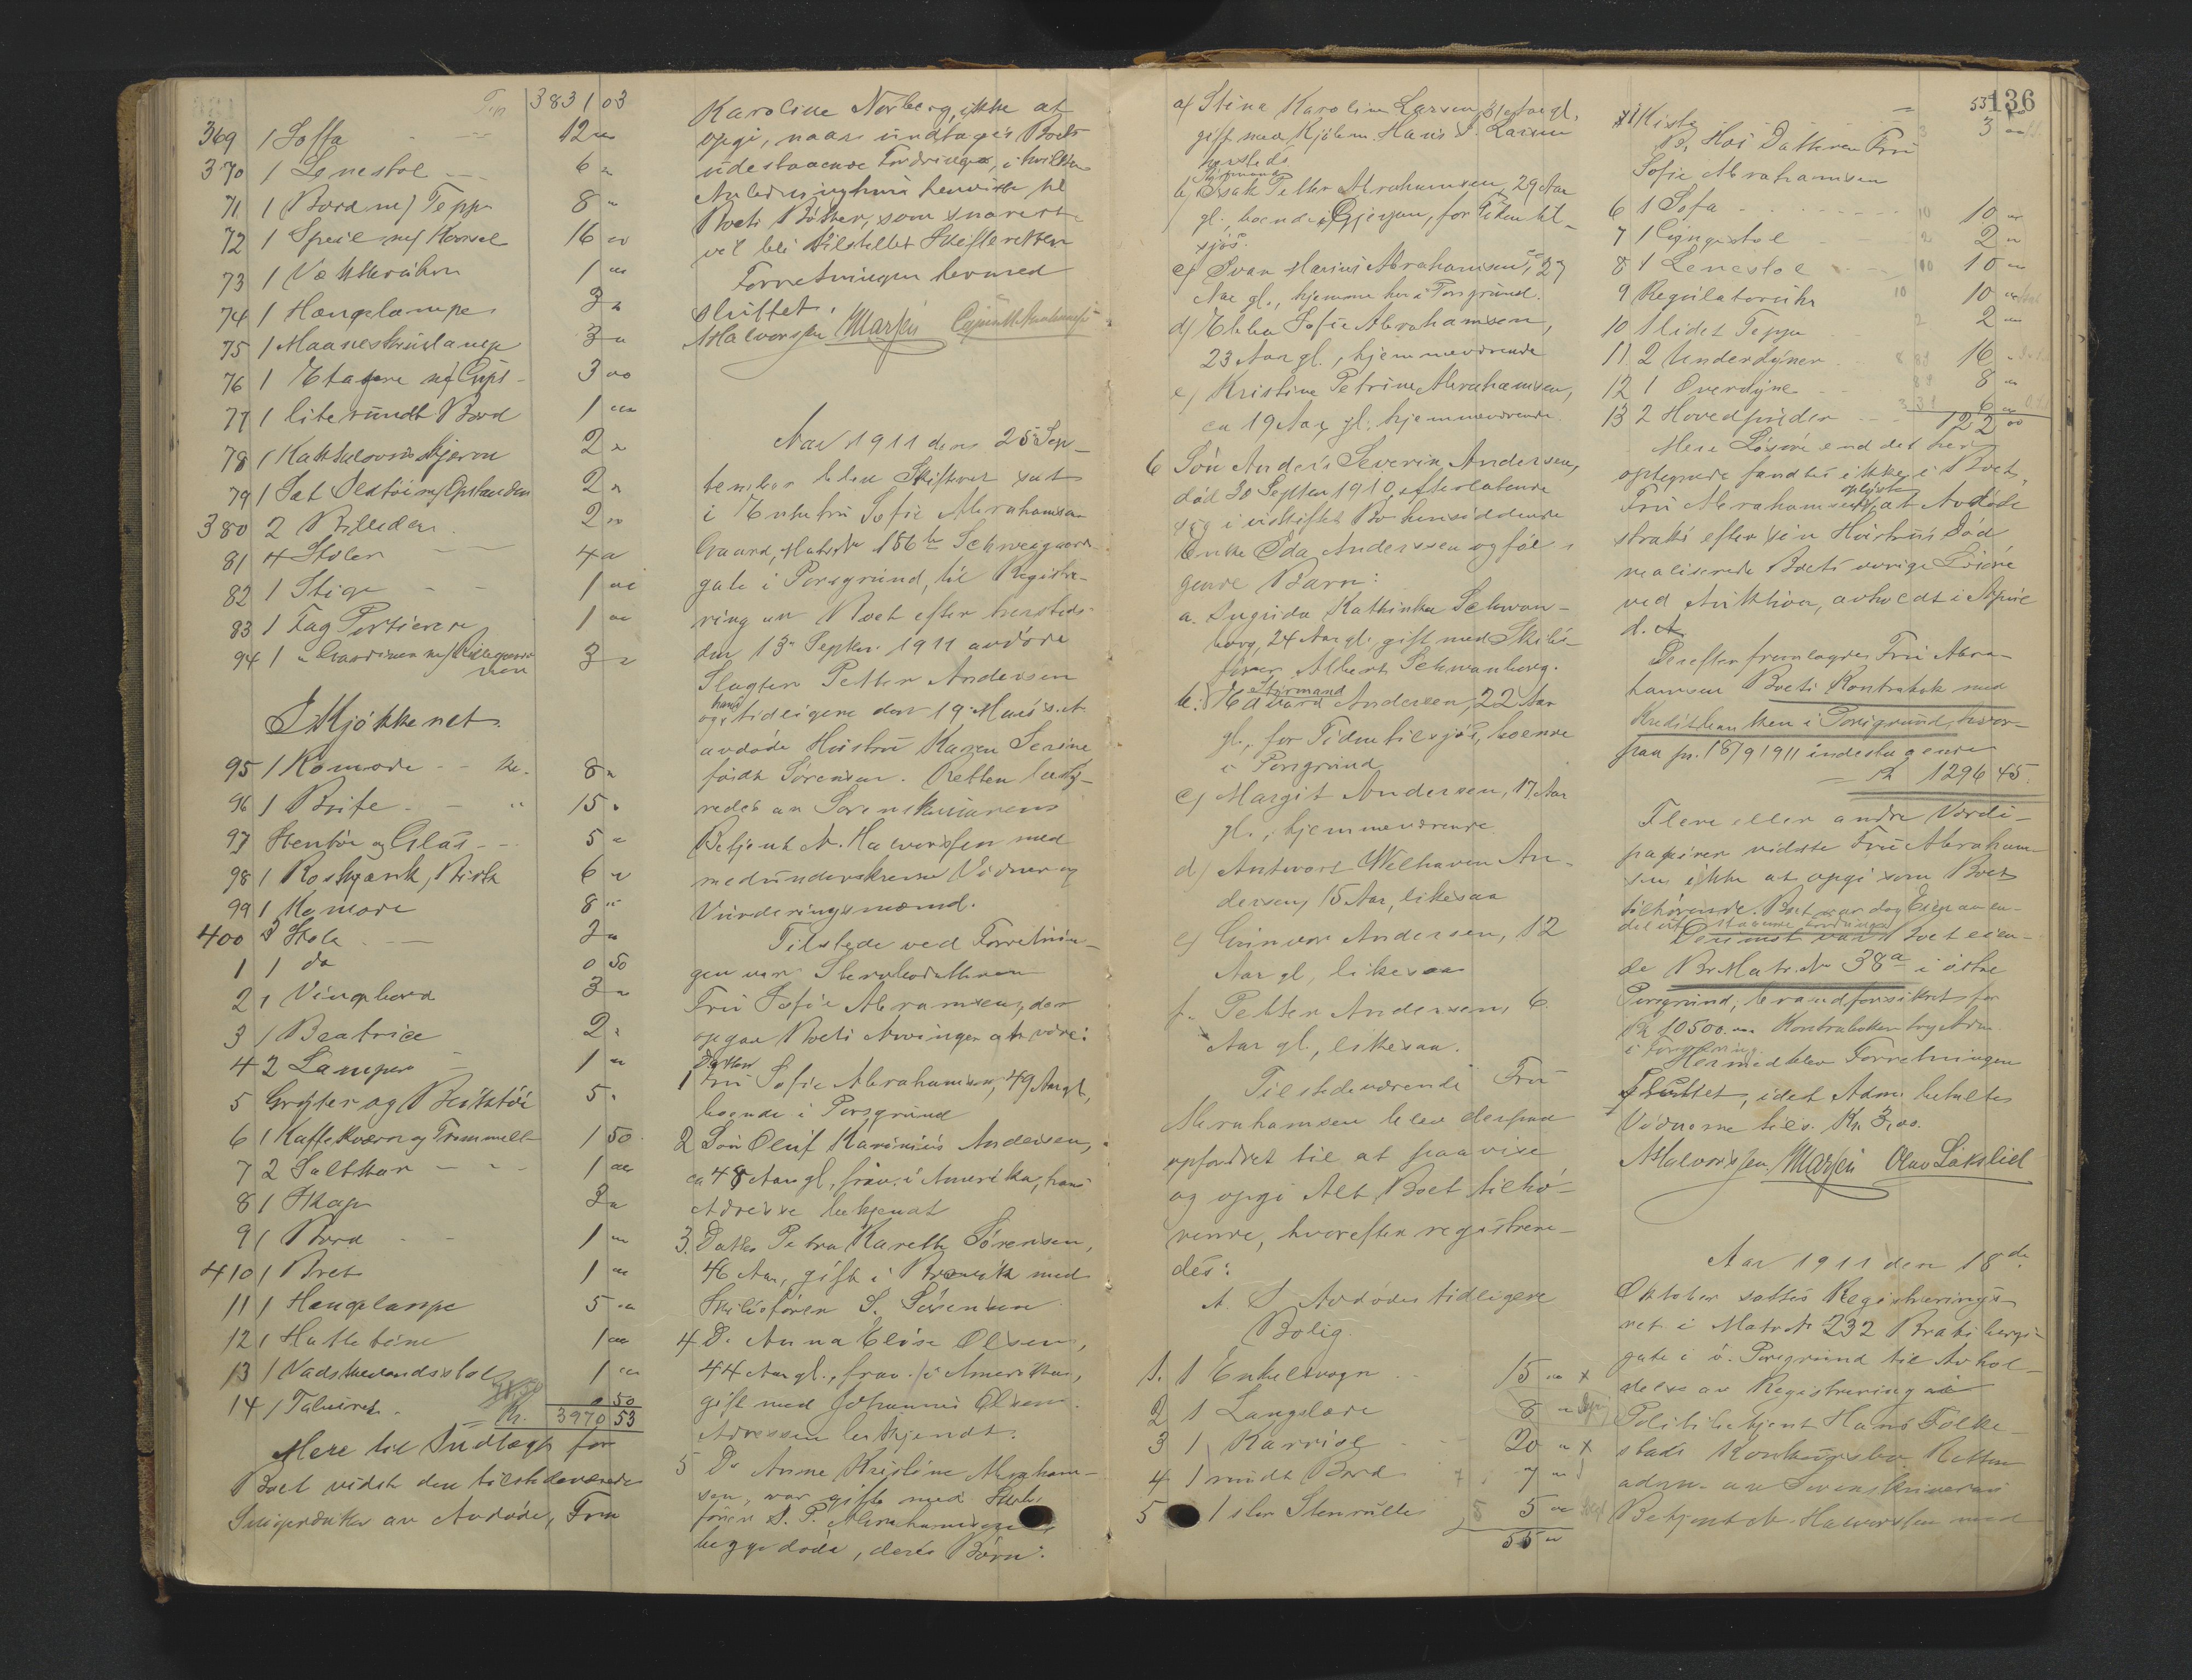 Tr. 3831 03
369 1 Soffa 12 "
370 1 Lenestol 6 "
71 1 Bord m/ Teppe 8 "
72 1 Speil m/ Konsol 16 00
73 1 Vækkeruhr 1 00
74 1 Hængelampe 3 "
75 1 Maaneskinslampe 3 "
76 1 Etagere m/ Gips 3 00
77 1 lite rundt Bord 1 00
78 1 Kakkelovnsskjærm 2 "
79 1 Sæt 2 "
380 2 Billeder 2 00
81 4 Stoler 4 "
82 1 Stige 1 00
83 1 Fag Portierer 1 00
94 1 " Gardiner m/ 3 "
I Kjøkkenet.
95 1 Komode kr. 8 "
96 1 Buffe " 15 "
97 Stentøi og Glas 5 "
98 1 6 "
99 1 Komode 8 "
400 3 Stole 3 "
1 1 do 0 50
2 1 Vingebord 3 "
3 1 Beatrice 2 "
4 2 Lamper 1 "
5 Gryter og Bliktøi 5 "
6 1 Kaffekværn og Trommell 1 50
7 2 Saltkar 1 00
8 1 Skap 3 "
9 1 Bord 1 "
410 1 Bret 1 00
11 1 Hængelampe 5 00
12 1 Hatte 1 00
13 1 Vadskevandsstol 1 "
14 1 0 50
Kr. 3970 53
Mere til Indtægt for
Boet vidste den tilstedeværende
Svigerdatter av Avdøde, Fru
Karoline Norberg, ikke at
opgi, naar undtages Boets
udestaaende Fordringer, i hvilken
Anledning hun henviste til
Boets Bøker, som snarest
vil bli tilstillet Skifteretten
Forretningen hermed
sluttet.
AHalvorsen Marsen
Aar 1911 den 25 Sep-
tember blev Skifteret sat
i Enkefru Sofie Abrahamsens
Gaard, Matr Nr 156b Schweigaards-
gate i Porsgrund, til Registre-
ring av Boet efter hersteds
den 13de Septbr. 1911 avdøde
Slagter Petter Andersen
og hans tidligere den 19 Mars s.A.
avdøde Hustru Karen Serine
født Sørensen. Retten besty-
redes av Sorenskriverens
Betjent A. Halvorsen med
medunderskrevne Vidner og
Vurderingsmænd.
Tilstede ved Forretnin-
gen var Sterbodatteren
Fru Sofie Abramsen, der
opgav Boets Arvinger at være:
1 Datter Fru Sofie Abrahamsen, 49 Aar gl,
boende i Porsgrund
2 Søn Oluf Andersen,
ca 48 Aar gl, frav. i Amerika, hans
Adresse bekjendt
3. Datter Petra Karette Sørensen,
46 Aar, gift i Brevik med
Skibsfører S. Sørensen
4 D. Anna Elise Olsen,
44 Aar gl., frav. i Amerika,
gift med Johannes Olsen.
Adressen bekjendt.
5 Do Anne Kristine Abraham-
sen, var gift med Skibs-
fører S. P. Abrahamsen
begge døde, deres Børn:
a) Stina Karoline Larsen, 31 Aar gl,
gift med Kjøbm. Hans S. Larsen
hersteds
b) Styrmand Isak Petter Abrahamsen, 29 Aar
gl., boende i Gjerpen, for Tiden til-
sjøs.
c) Ivar Marius Abrahamsen, ca 27
Aar gl., hjemme her i Porsgrund.
d) Ebba Sofie Abrahamsen,
23 Aar gl., hjemmeværende
e) Kristine Petrine Abrahamsen,
ca 19 Aar gl. hjemmeværende
6 Søn Anders Severin Andersen,
død 30 Septbr 1910, efterlatende
sig i uskiftet Bo hensiddende
Enke Ida Andersen og føl-
gende Barn:
a. Ingrida Kathinka Schwan-
borg, 24 Aar gl. gift med Skibs-
fører Albert Schwanborg.
b. Styrmand Edvard Andersen, 22 Aar
gl., for Tiden tilsjøs, boende
i Porsgrund
c) Margit Andersen, 17 Aar
gl., hjemmeværende
d) Antwort Welhaven An-
dersen, 15 Aar, likesaa
e) Gunvor Andersen, 12
Aar gl, likesaa
f. Petter Andersen, 6
Aar gl, likesaa.
Tilstedeværende Fru
Abrahamsen blev derpaa
opfordret til at paavise
og opgi Alt Boet tilhø-
rende, hvorefter registrere-
des:
A. I Avdødes tidligere
Bolig.
1. 1 Enkeltvogn 15 00 x
2 1 Langslæde 8 "
3 1 Karriol 20 " x
4 1 rundt Bord 7 "
5 1 stor Stenrulle 5 00
55 "
136
55
1 Kiste 3 00
B. Hos Datteren Fru
Sofie Abrahamsen
6 1 Sofa 10 10 00
7 1 Gyngestol 2 2 "
8 1 Lenestol 10 10 "
9 Regulatoruhr 10 10 "
10 1 lidet Teppe 2 2 "
11 2 Underdyner 16 "
12 1 Overdyne 8 "
13 2 Hovedputer 6 "
122 00
Mere Løsøre end det her
optegnede fandtes ikke i Boet,
Fru Abrahamsen oplyste, at Avdøde
straks efter sin Hustrus Død
realiserede Boets øvrige Løsøre
ved Auktion, avholdt i April
d. A
Derefter fremlagdes Fru Abra-
hamsen Boets Kontrabok med
Kreditbanken i Porsgrund, hvor-
paa pr. 18/9 1911 indestaaende
Kr. 1296 45.
Flere eller andre Værdi-
papirer vidste Fru Abraham-
sen ikke at opgi som Boet
tilhørende. Boet var dog Eier av en-
del utestaaende Fordringer
Derimot var Boet eien-
de Br. Matr. Nr 38a i østre
Porsgrund, brandforsikret for
Kr 10500.00 Kontraboken tog Adm.
i Forvaring.
Hermed blev Forretningen
sluttet, idet Adm. betalte
Vidnerne tils. Kr. 3,00.
AHalvorsen Marsen Olav Lakslid
Aar 1911 den 18de
Oktober sattes Registrerings-
ret i Matr Nr 232 Bratsbergs-
gate i ø. Porsgrund til Avhol-
delse av Registrering i
Politibetjent Hans Folke-
stads Konkursbo. Retten
adm. av Sorenskriverens
Betjent A. Halvorsen med